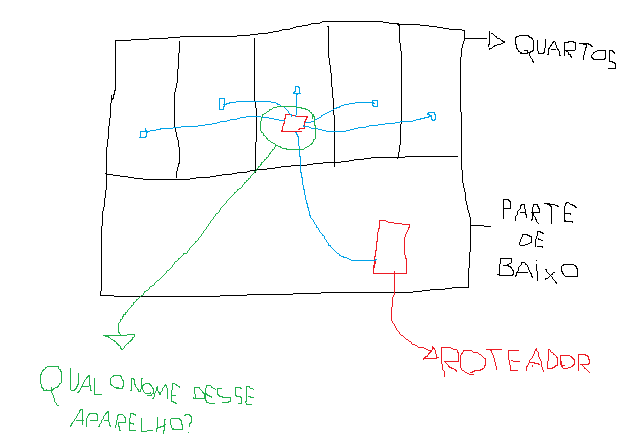 QUARTOS
PARTE
DE
BAIXO
ROTEADOR
QUAL O NOME DESSE
APARELHO?